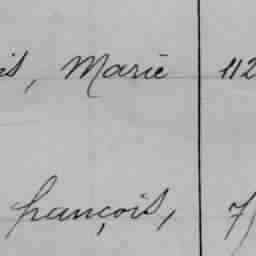 , Marie 112
françois,